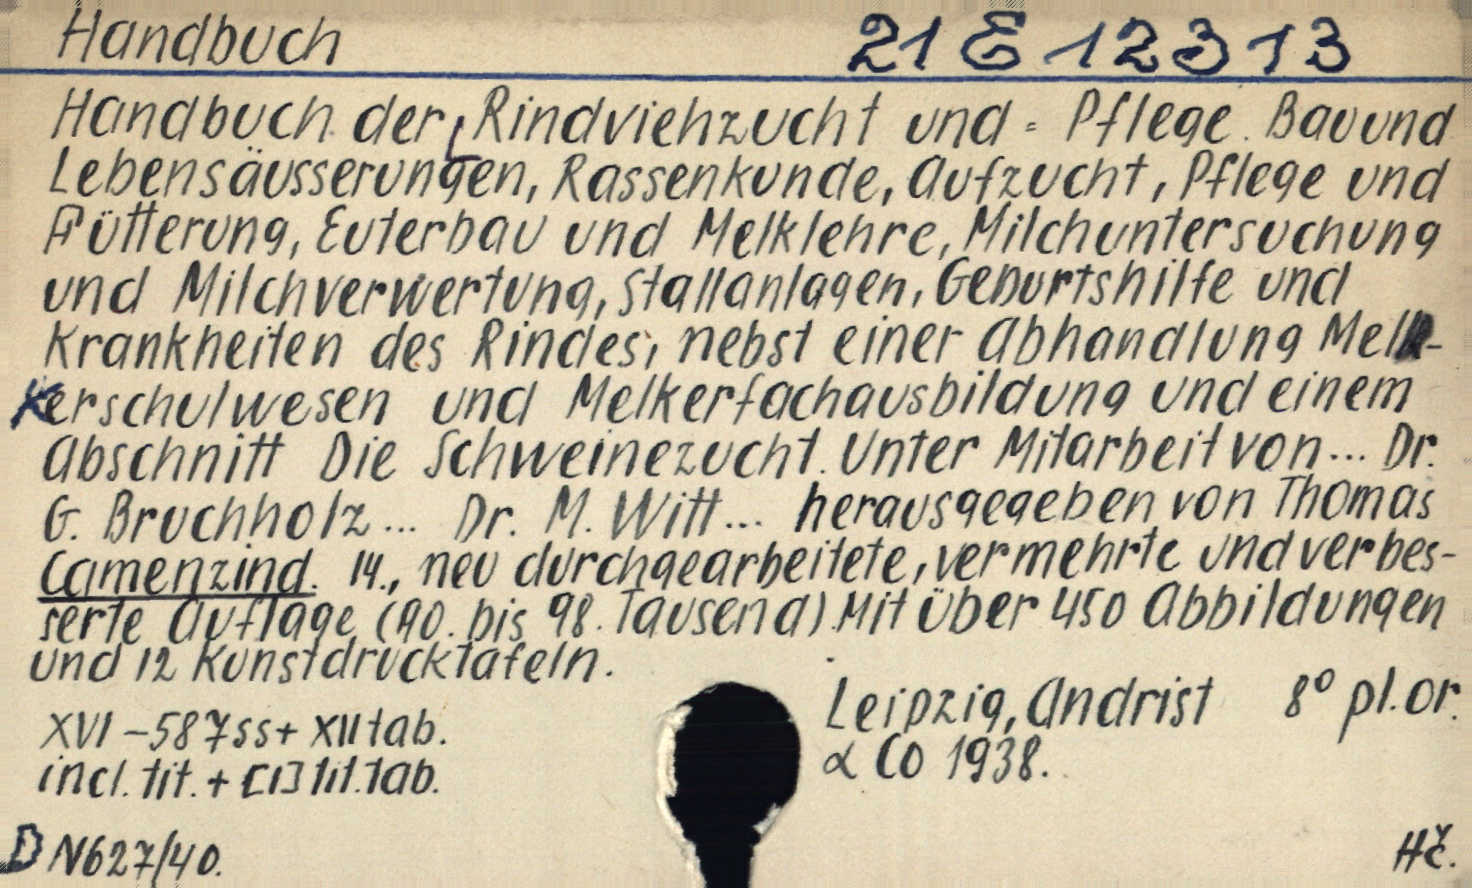 Handbuch 21 E 12313
Handbuch der Rindviehzucht und = Pflege. Bau und
Lebensäusserungen, Rassenkunde, Aufzucht, Pflege und
Fütterung, Euterbau und Melklehre, Milchuntersuchung
und Milchverwertung, Stallanlagen, Geburtshilfe und
Krankheiten des Rindes, nebst einer Abhandlung Mel-
kerschulwesen und Melkerfachausbildung und einem
Abschnitt Die Schweinezucht. Unter Mitarbeit von... Dr.
G. Bruchholz... Dr. M. Witt... herausgegeben von Thomas
Camenzind. 14., neu durchgearbeitete, vermehrte und verbes-
serte Auflage (90. bis 98. Tausend). Mit über 450 Abbildungen
und 12 Kunstdrucktafeln.
Leipzig, Andrist 8° pl. or.
& Co 1938.
XVI - 587 ss + XII tab.
incl. tit. + [1] tit. tab.
D N627/40.
Hč.